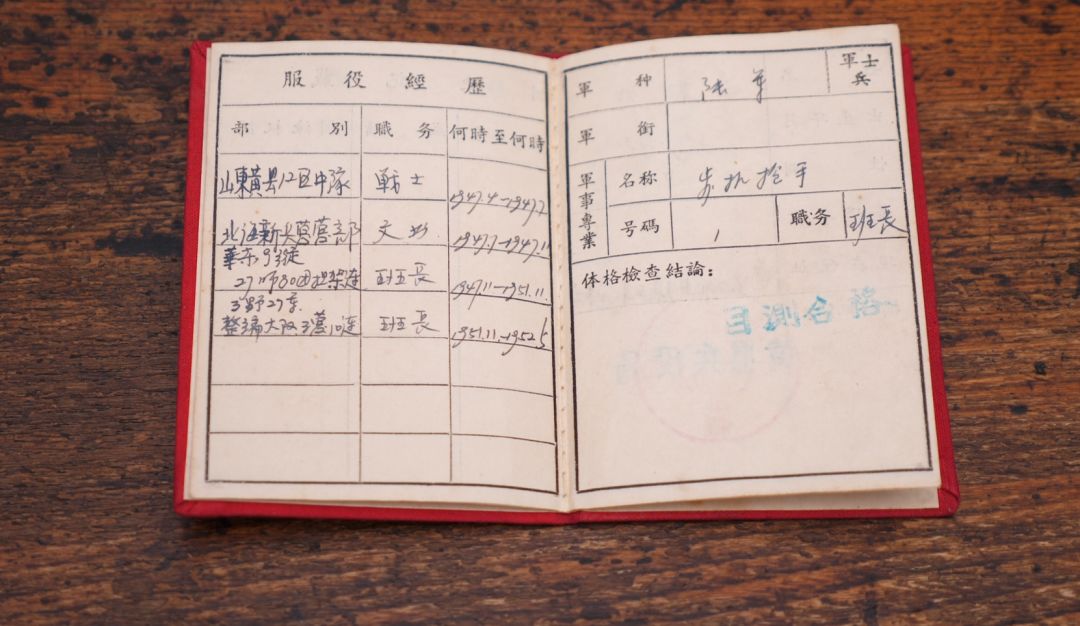 服役經歷
部別 職务 何時至何時
山東黃县12区中隊 战士 1947.4-1947.7
北海新大營营部 文 1947.7-1947.11
華东9纵
27师80团担架连 班長 1947.11-1951.11
3野27京
整编大队3营10连 班長 1951.11-1952.5
軍种 陆軍 軍士兵
軍銜
軍事專業 名称 步机枪手
号碼 1 職务 班長
体格檢查結論:
目測合格